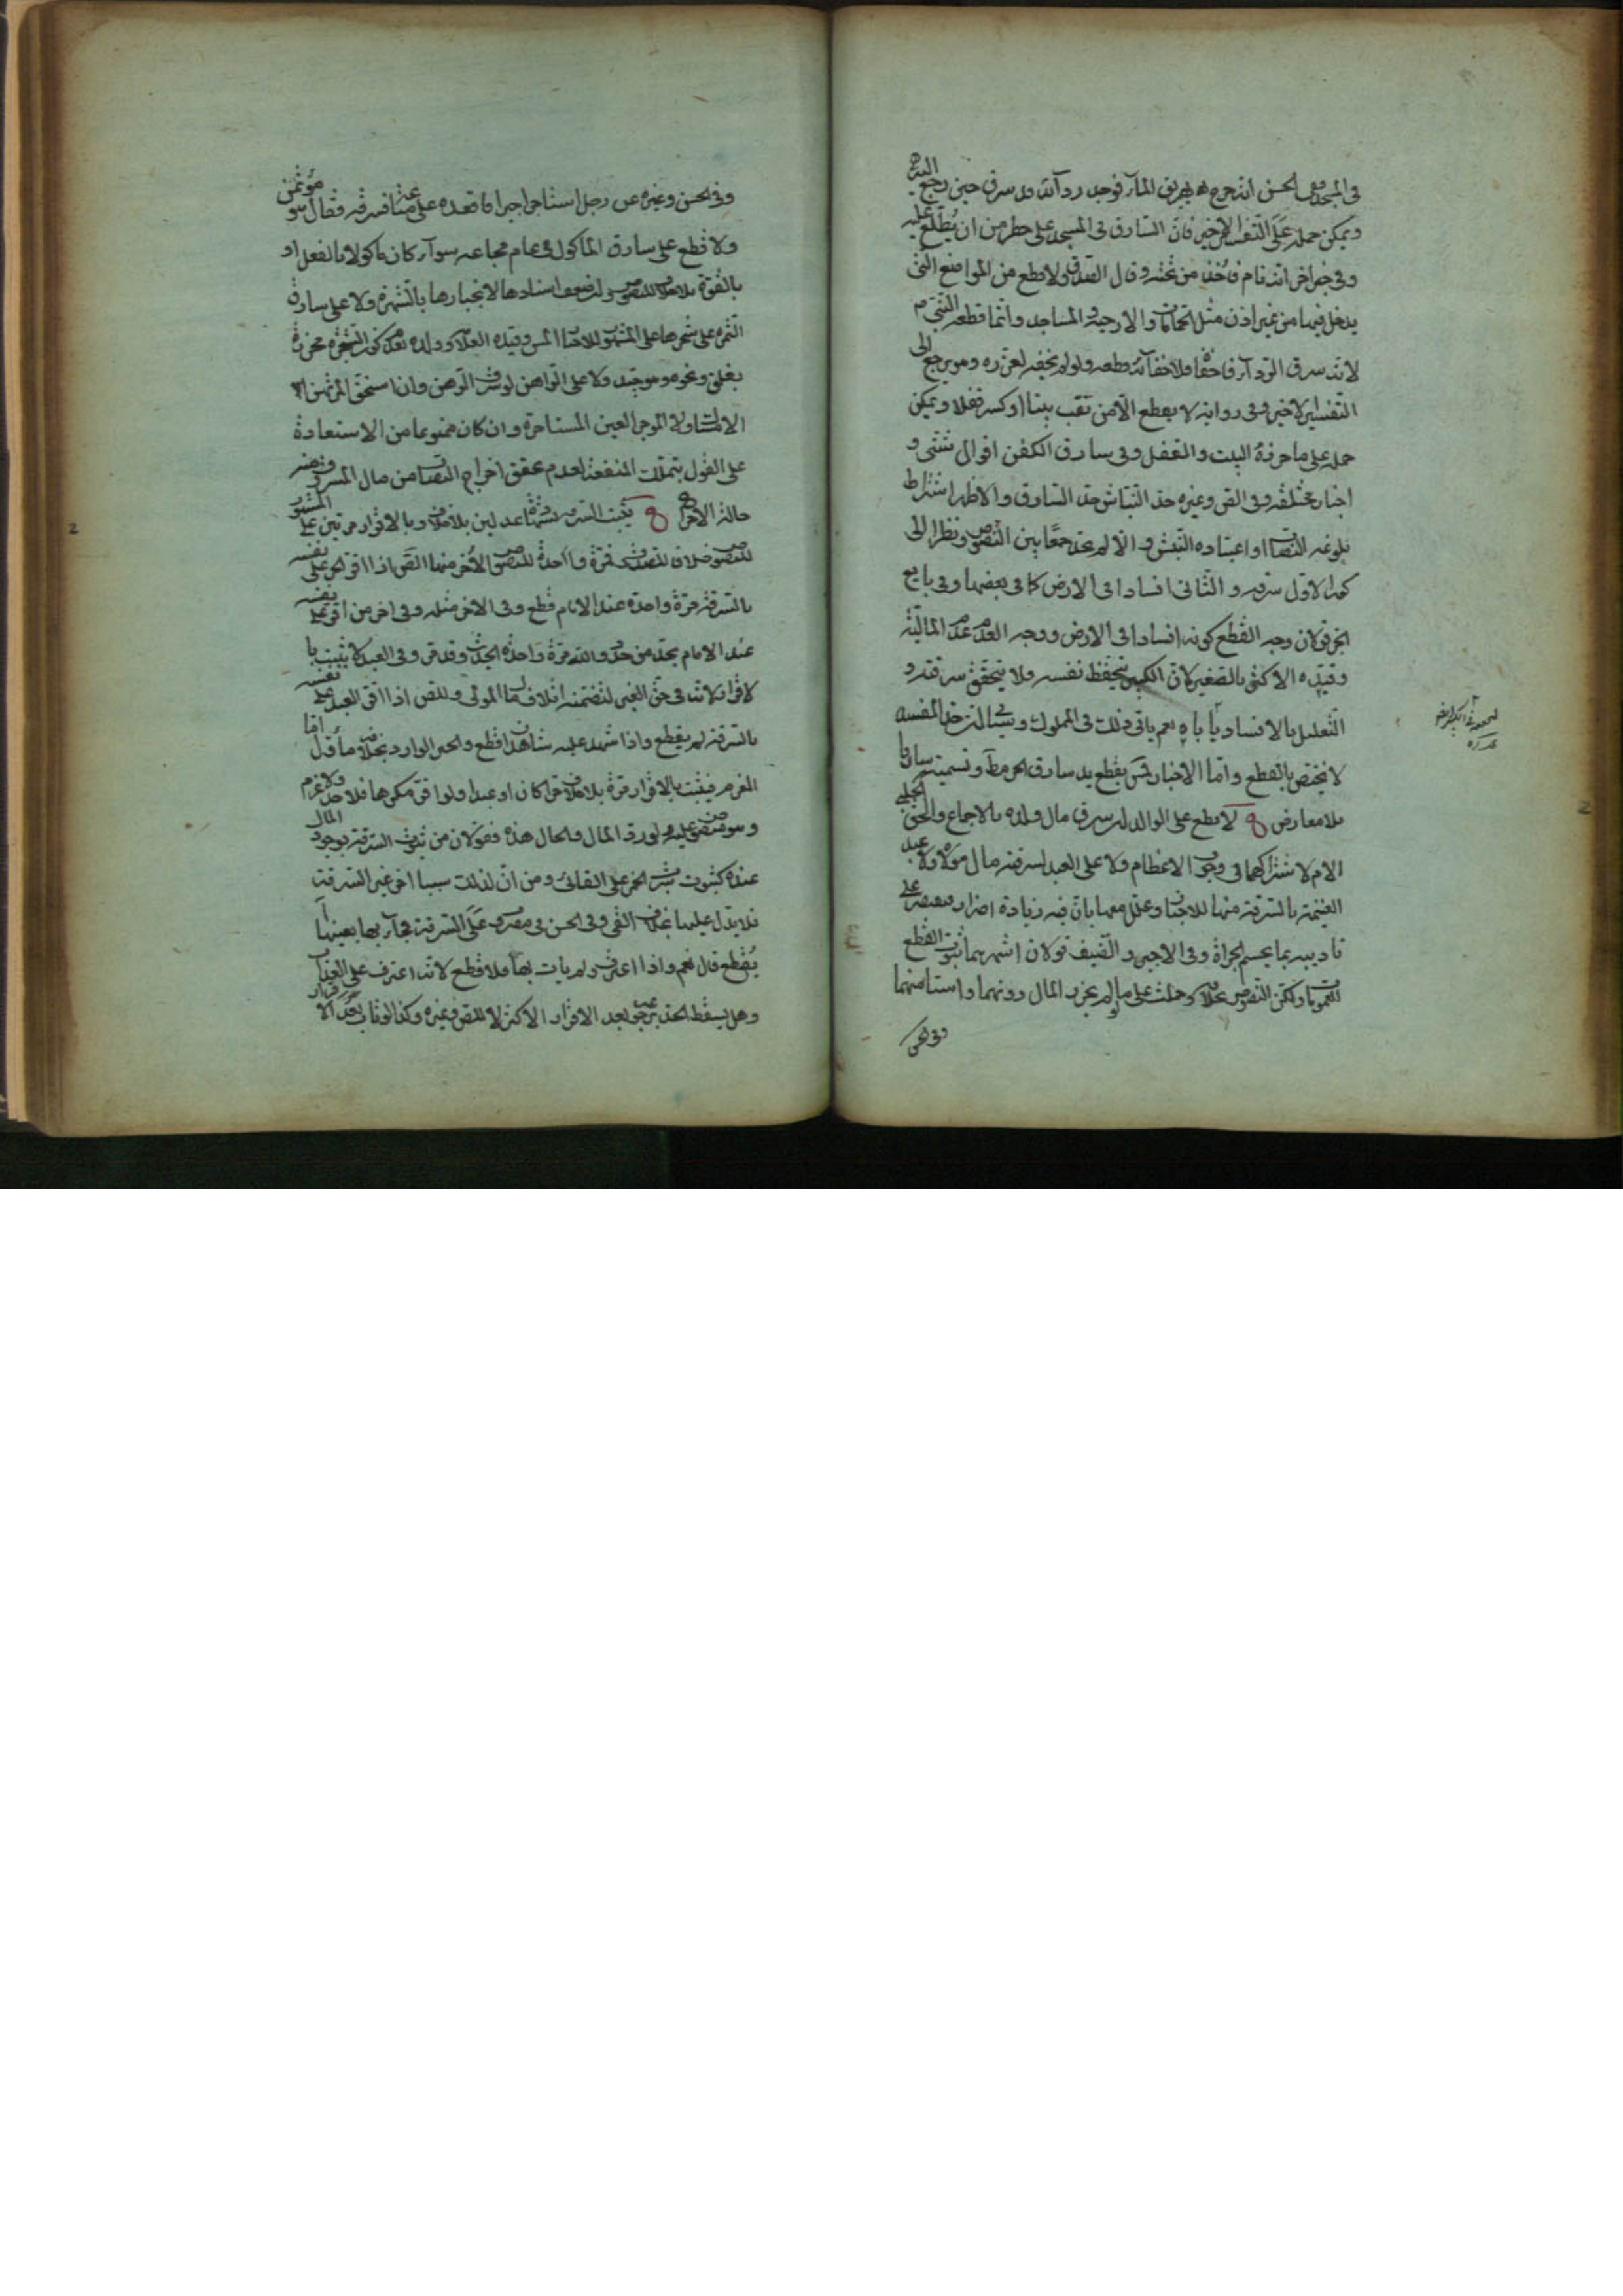 في المسجد وفي الحسن انه خرج يهريق المآء فوجد ردآئه قد سرق حين رجع اليه
ويمكن حمله على التفسير الاخير فان السارق في المسجد على خطر من ان يطلع عليه
وفي خبر اخر انه نام فاخذ من تحته وقال الصدوق ولا قطع من المواضع التي
يدخل فيها من غير اذن مثل الحمامات والارحية والمساجد وانما قطعه النبي ص
لانه سرق الردآء فاخفاه فلاخفآئه قطعه ولو لم يخفه لعزره وهو يرجع الى
التفسير الاخير وفي رواية لا يقطع الا من نقب بيتا او كسر قفلا ويمكن
حمله على ما حرزه البيت والقفل وفي سارق الكفن اقوال شتى و
اخبار مختلفة وفي الص وغيره حد النباش حد السارق والاظهر اشتراط
بلوغه النصاب او اعتياده النبش والا لم يحد جمعا بين النصوص ونظرا الى
كون الاول سرقة والثاني افسادا في الارض كما في بعضها وفي بايع
الحر قولان وجه القطع كونه افسادا في الارض ووجه العدم عدم المالية
وقيده الاكثر بالصغير لان الكبير يتحفظ نفسه فلا يتحقق سرقته و
التعليل بالافساد ياباه نعم ياتي ذلك في المملوك وفيه ان حد المفسد
لا يختص بالقطع واما الاخبار ففي بقطع يد سارق الحر مط وتسميته سارقا
بلا معارض لا قطع على الوالد لو سرق مال ولده بالاجماع والحق الحلبي
الام لاشتراكهما في وجوب الاعظام ولا على العبد لسرقة مال مولاه ولا عبد
الغنيمة بالسرقة منها للاخبار وعلل معها بان فيه زيادة اضرار فيقتصر على
تاديبه بما يحسم الجراة وفي الاجير والضيف قولان اشهرهما ثبوت القطع
للعمومات ولكن النصوص بخلافه وحملت على ما لو لم يحرز المال دونهما واستامنهما
وفي الحسن
وفي الحسن وغيره عن رجل استاجر اجيرا فاقعده على متاعه فسرقه فقال هو مؤتمن
ولا قطع على سارق الماكول في عام مجاعة سوآء كان ماكولا بالفعل او
بالقوة بلا خلاف للنصوص وان ضعف اسنادها لانجبارها بالشهرة ولا على سارق
الثمرة على شجرها على المشهور للاخبار وقيده العلامة وولده بعدم كون الشجرة محرزة
بغلق ونحوه وهو جيد ولا على الراهن لو سرق الرهن وان استحق المرتهن
الامساك ولا الموجر العين المستاجرة وان كان ممنوعا من الاستعادة
على القول بتملك المنفعة لعدم تحقق اخراج النصاب من مال المسروق منه
حالة الاخراج يثبت السرقة بشهادة عدلين بلا خلاف وبالاقرار مرتين على المشهور
للنصوص خلافا للصدوق فمرة واحدة للنصوص الاخر منها الص اذا اقر الحر على نفسه
بالسرقة مرة واحدة عند الامام قطع وفي الاخر مثله وفي اخر من اقر على نفسه
عند الامام بحد من حدود الله مرة واحدة الحديث وقد مر وفي العبد لا يثبت با
لاقرار لانه في حق الغير لتضمنه اتلاف مال المولى وللص اذا اقر العبد على نفسه
بالسرقة لم يقطع واذا شهد عليه شاهدان قطع والخبر الوارد بخلافه ماول اما
الغرم فيثبت بالاقرار مرة بلا خلاف حرا كان او عبدا ولو اقر مكرها فلا حد ولا غرم
وهو منصوص عليه ولو رد المال والحال هذه فقولان من ثبوت السرقة بوجود المال
عنده كثبوت شرب الخمر على القائئ ومن ان لذلك سببا اخر غير السرقة
فلا يدل عليها بخلاف القئ وفي الحسن في مضروب على السرقة فجآء بها بعينها أ
يقطع قال نعم واذا اعترف ولم يات بها فلا قطع لانه اعترف على العذاب
وهل يسقط الحد برجوعه بعد الاقرار الاكثر لا للص وغيره وكذا لو تاب بعد الاقرار